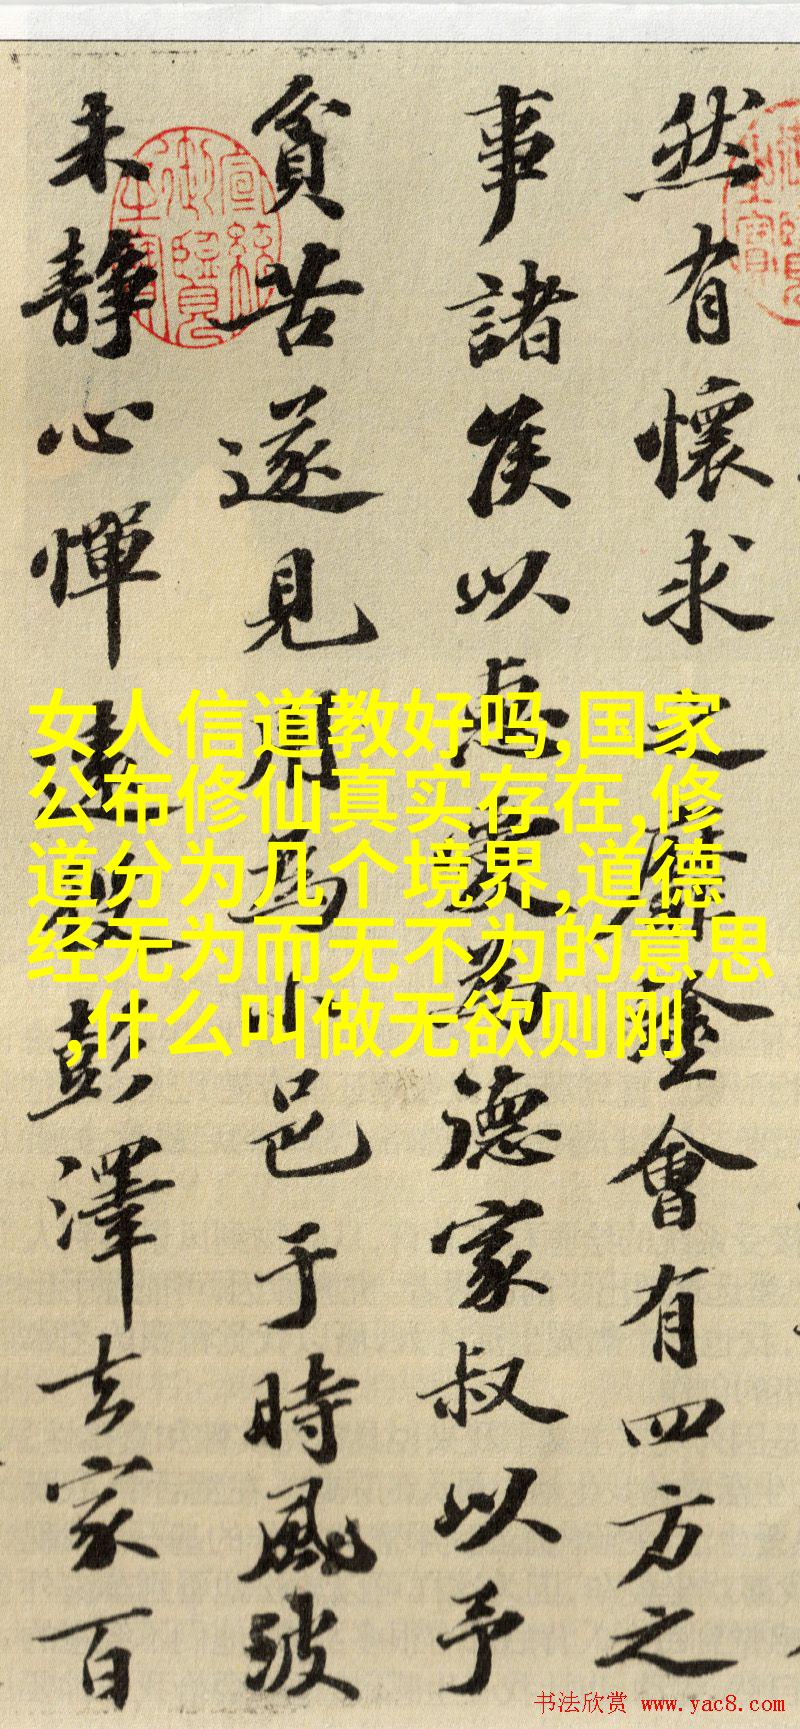 然有懷求之靡塗會有四方之
事諸侯以惠愛為德家叔以予
貧苦遂見用為小邑于時風波
未靜心憚遠役彭澤去家百
宣統
御覽
之寶
女人信道教好吗,国家
公布修仙真实存在,修
道分为几个境界,道德
经无为而无不为的意思
,什么叫做无欲则刚
书法欣赏 www.yac8.com